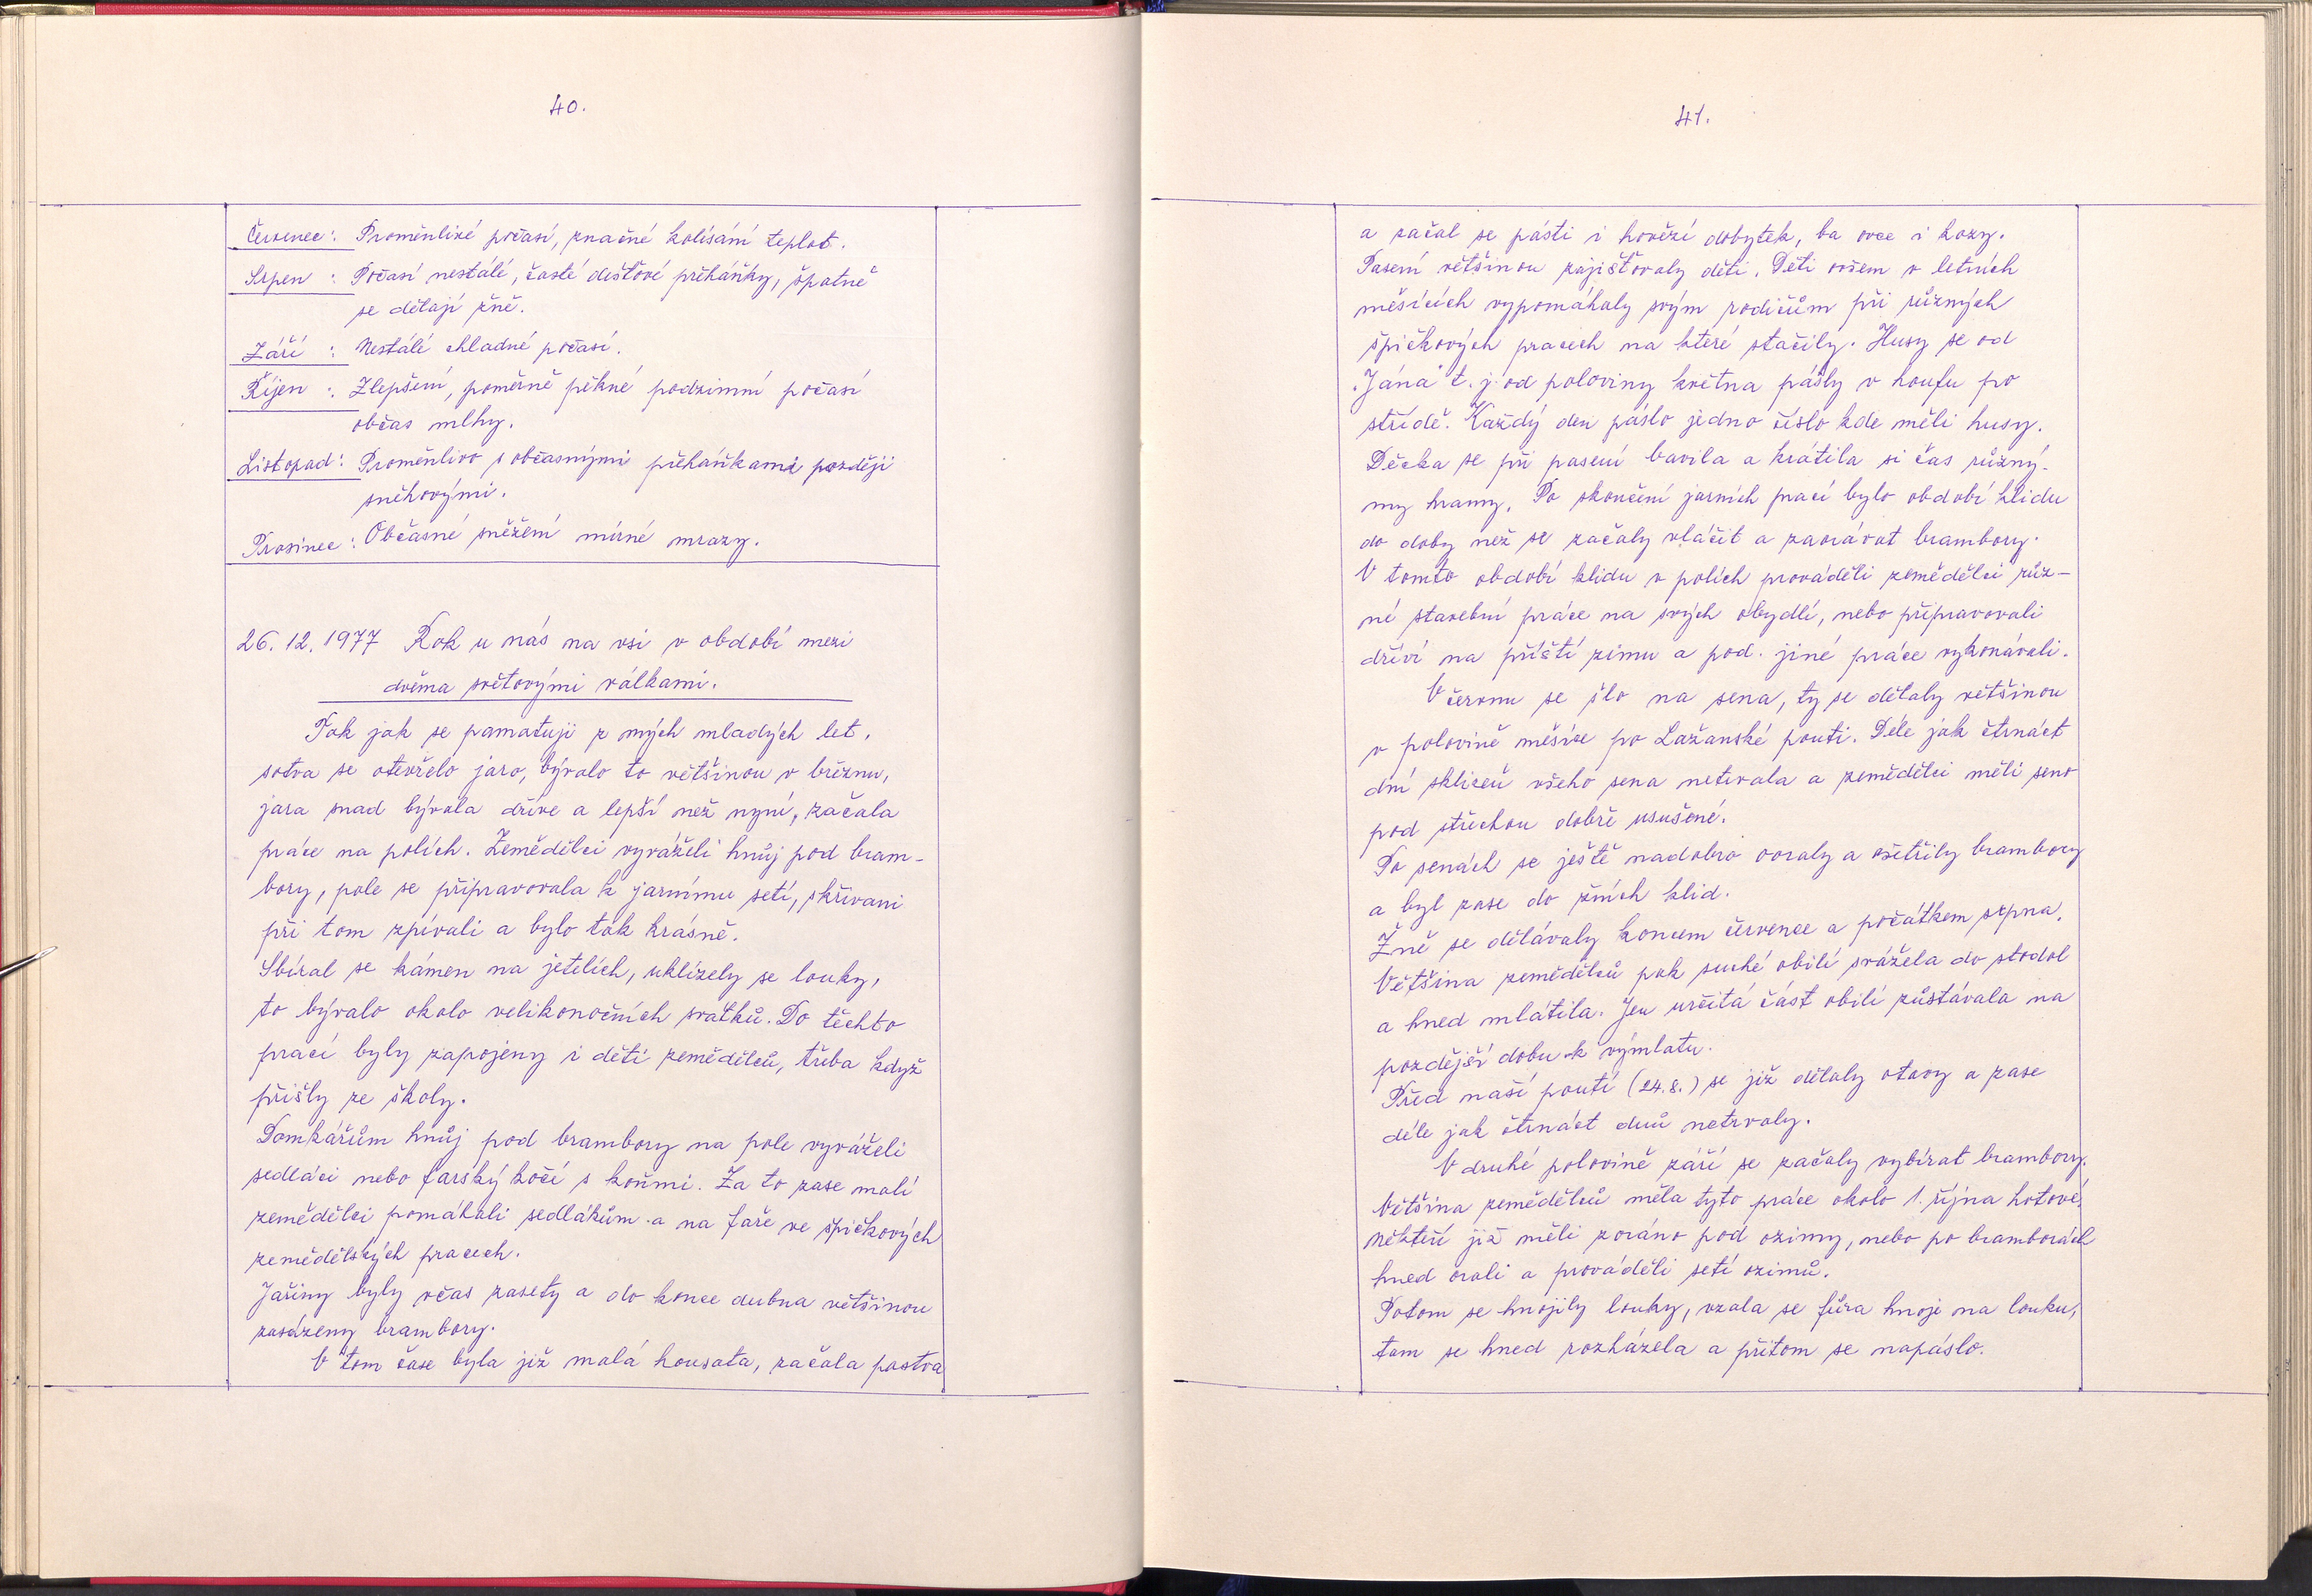 40.
Červenec: Proměnlivé počasí, značné kolísání teplot.
Srpen : Počasí nestálé, časté dešťové přeháňky, špatně
se dělají žně.
Září : Nestálé chladné počasí.
Říjen : Zlepšení, poměrně pěkné podzimní počasí
občas mlhy.
Listopad: Proměnlivo s občasnými přeháňkami později
sněhovými.
Prosinec: Občasné sněžení mírné mrazy.
26. 12. 1977 Rok u nás na vsi v období mezi
dvěma světovými válkami.
Tak jak se pamatuji z mých mladých let,
sotva se otevřelo jaro, bývalo to většinou v březnu,
jara snad bývala dříve a lepší než nyní, začala
práce na polích. Zemědělci vyváželi hnůj pod bram-
bory, pole se připravovala k jarnímu setí, skřivani
při tom zpívali a bylo tak krásně.
Sbíral se kámen na jetelích, uklízely se louky,
to bývalo okolo velikonočních svátků. Do těchto
prací byly zapojeny i děti zemědělců, třeba když
přišly ze školy.
Domkářům hnůj pod brambory na pole vyváželi
sedláci nebo farský kočí s koňmi. Za to zase malí
zemědělci pomáhali sedlákům a na faře ve špičkových
zemědělských pracech.
Jařiny byly včas zasety a do konce dubna většinou
zasázeny brambory.
V tom čase byla již malá housata, začala pastva
41.
a začal se pásti i hovězí dobytek, ba ovce i kozy.
Pasení většinou zajišťovaly děti. Děti ovšem v letních
měsících vypomáhaly svým rodičům při různých
špičkových pracech na které stačily. Husy se od
„Jána" t. j. od poloviny května pásly v houfu po
střídě. Každý den páslo jedno číslo kde měli husy.
Děcka se při pasení bavila a krátila si čas různý-
my hramy. Po skončení jarních prací bylo období klidu
do doby než se začaly vláčit a zaorávat brambory.
V tomto období klidu v polích prováděli zemědělci růz-
né stavební práce na svých obydlí, nebo připravovali
dříví na příští zimu a pod. jiné práce vykonávali.
V červnu se šlo na sena, ty se dělaly většinou
v polovině měsíce po Lažanské pouti. Déle jak čtrnáct
dní sklizeň všeho sena netrvala a zemědělci měli seno
pod střechou dobře usušené.
Po senách se ještě nadobro ooraly a ošetřily brambory
a byl zase do žních klid.
Žně se dělávaly koncem července a počátkem srpna.
Většina zemědělců pak suché obilí svážela do stodol
a hned mlátila. Jen určitá část obilí zůstávala na
pozdější dobu k výmlatu.
Před naší poutí (24.8.) se již dělaly otavy a zase
déle jak čtrnáct dnů netrvaly.
V druhé polovině září se začaly vybírat brambory.
Většina zemědělců měla tyto práce okolo 1. října hotové,
někteří již měli zoráno pod ozimy, nebo po bramborách
hned orali a prováděli setí ozimů.
Potom se hnojily louky, vzala se fůra hnoje na louku,
tam se hned rozházela a přitom se napáslo.